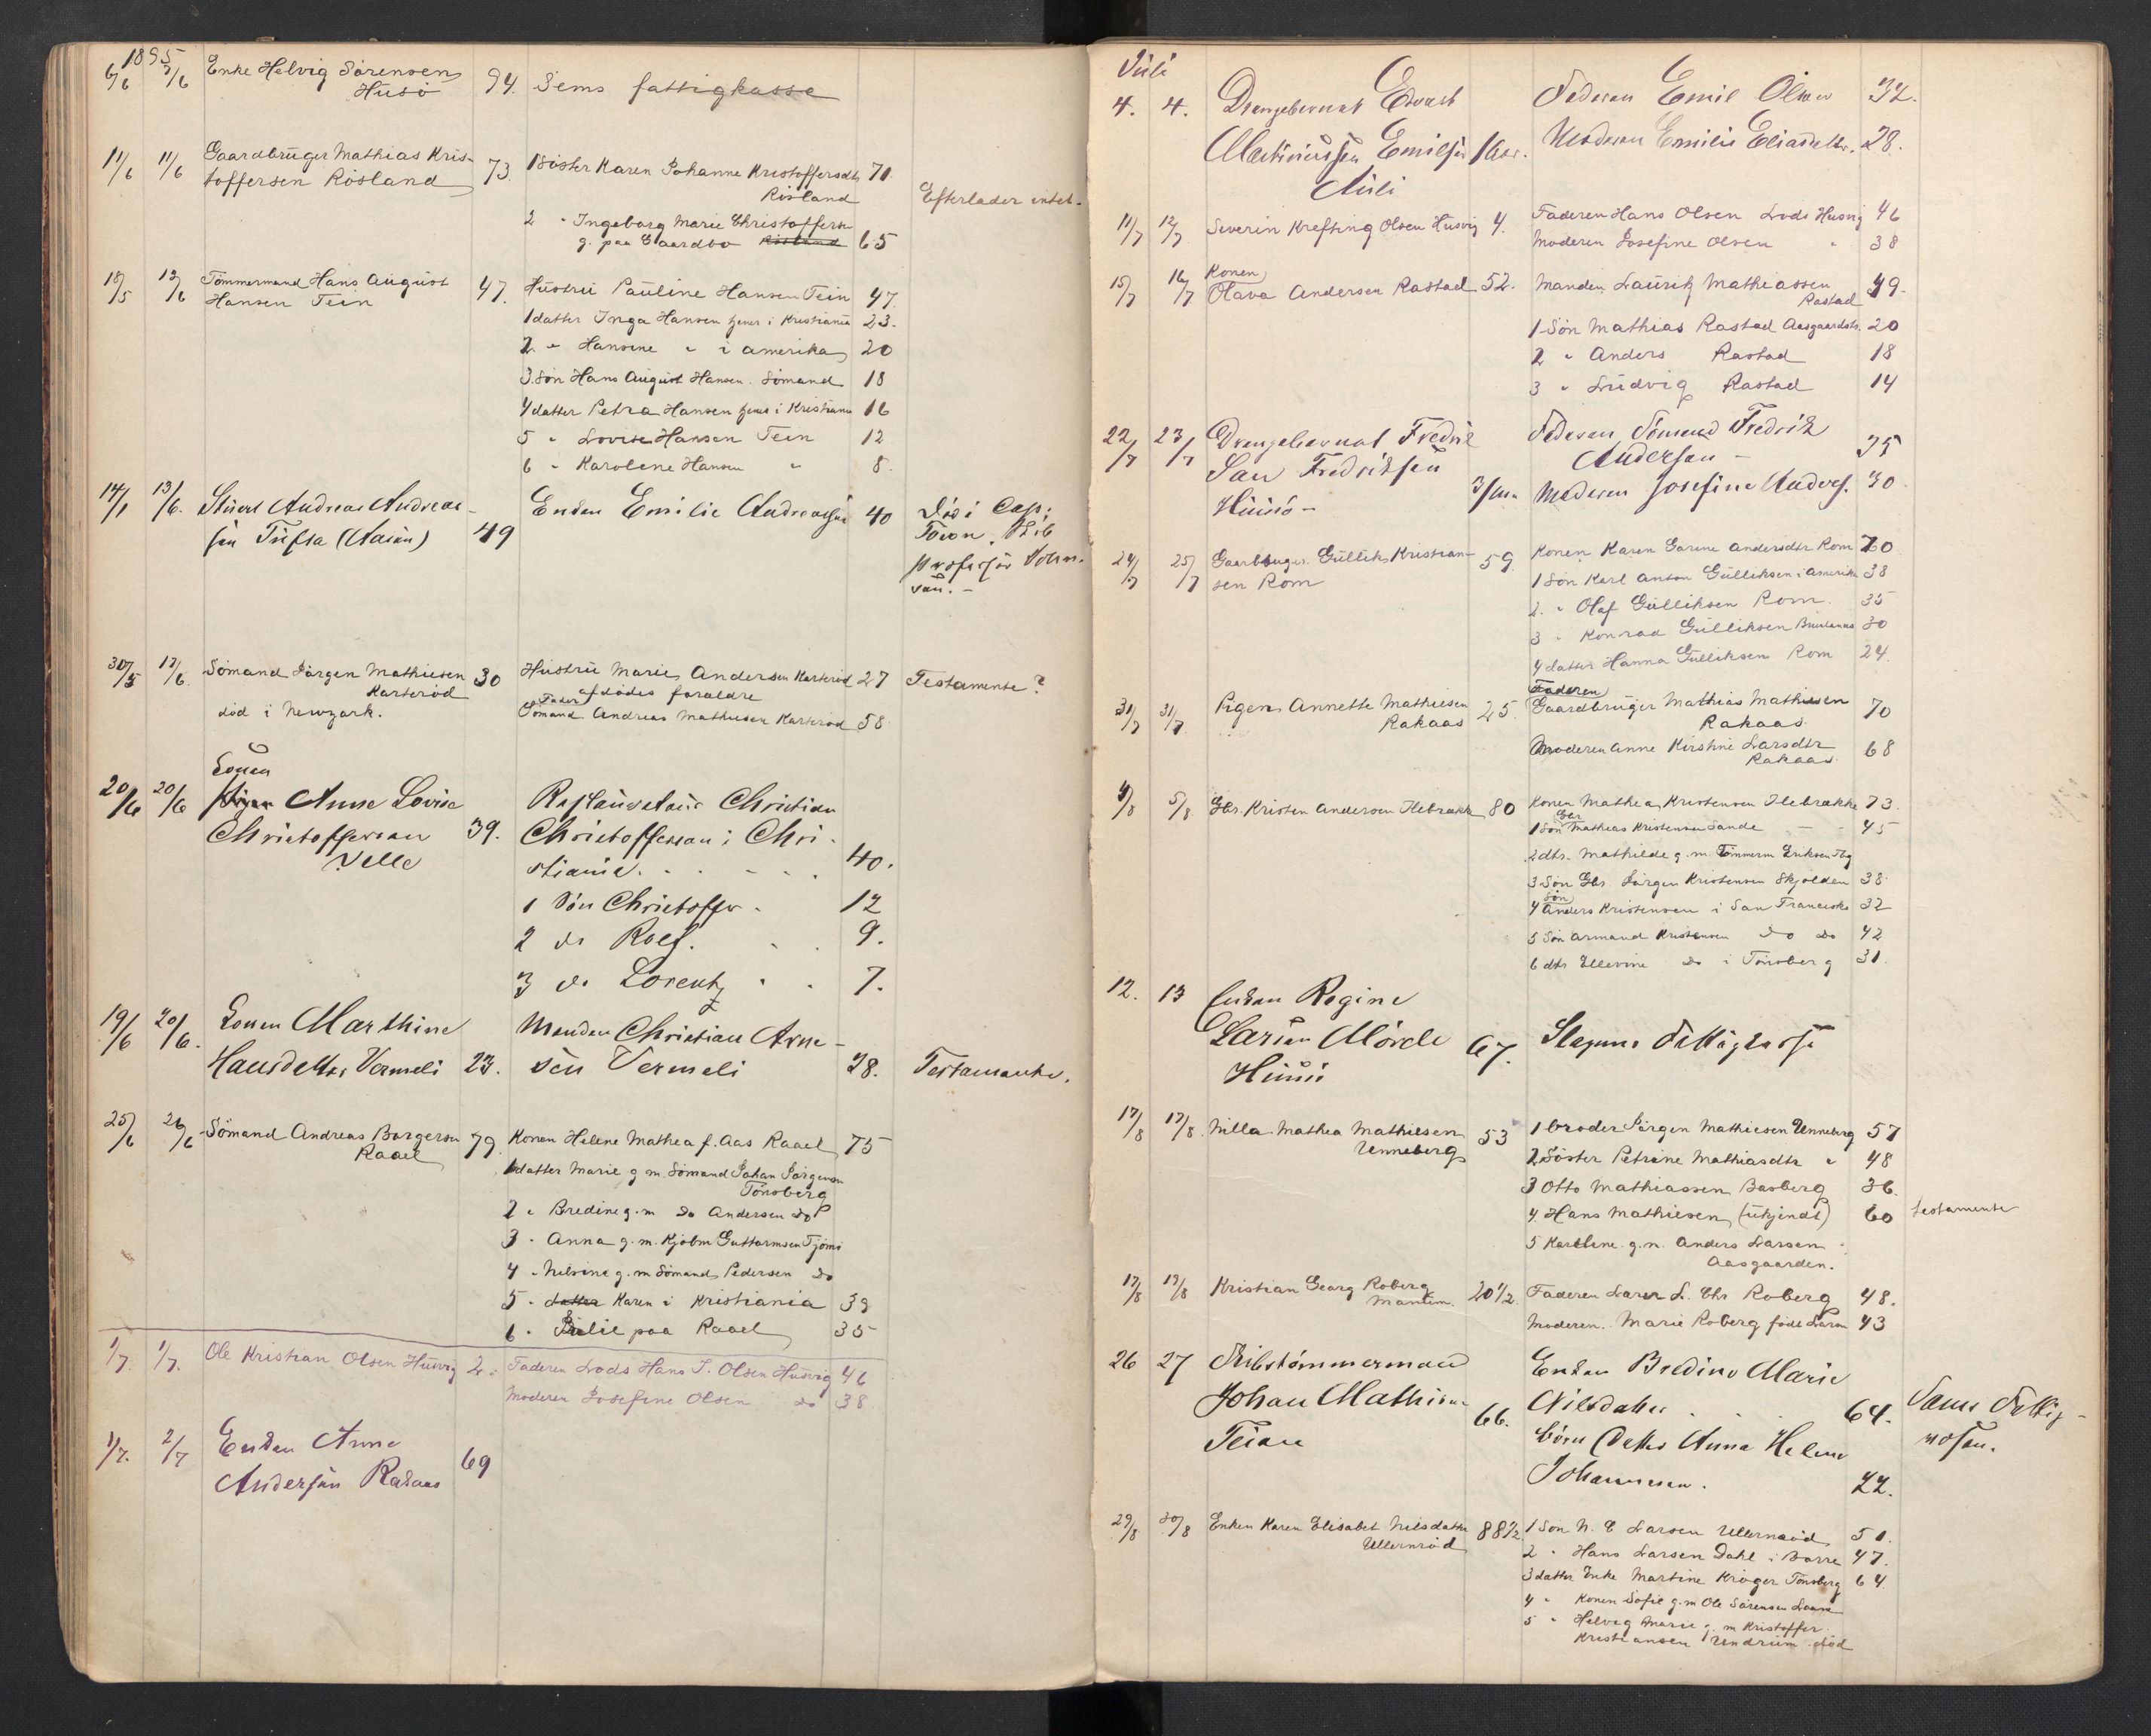 1895
6/6 7/6 Enke Helvig Sørensen 94. Sems fattigkasse
Husö
11/6 11/6 Gaardbrüger Mathias Kris-
toffersen Rösland 73. 1 Söster Karen Johanne Kristoffersdtr 71
Rösland Efterlader intet.
2 " Ingeborg Marie Christoffersen
g. paa Gaardbo Rösland 65
18/5 12/6 Tömmermand Hans August
Hansen Tein 47. Hustru Pauline Hansen Tein 47.
1 datter Inga Hansen tjener i Kristiania 23.
2. " Hansine " i amerika 20
3. Sön Hans August Hansen. Sömand 18
4 datter Petra Hansen tjener i Kristiania 16
5 " Lovise Hansen Tein 12
6 " Karoline Hansen " 8.
14/1 13/6. Stuert Andreas Andreas-
sen Tufta (Aaien) 49 Enken Emilie Andreassen 40 Död i Cap:
Town.
professor
30/5 17/6. Sömand Jörgen Mathiesen 30 Hustru Marie Andersen Karteröd 27 Testamente?
Karteröd afdödes foraldre
död i Newyark. Fader
Sömand Andreas Mathiesen Karteröd 58
Konen
20/6 20/6 Anne Lovise Restauratör Christian
Christoffersen 39. Christoffersen i Chri-
Velle stiania. 40.
1 Sön Christoffer. 12
2 do Rolf. 9.
3 do Lorentz 7.
19/6 20/6. Konen Marthine Manden Christian Arne-
Hansdatter Vermeli 23. sen Vermeli 28. Testamente.
25/6 26/6 Sömand Andreas Borgersen 79. Konen Helene Mathea f. Aas Raael 75
Raael 1 datter Marie g m. Sömand Johan Jörgensen
Tönsberg
2 " Bredine g. m do Andersen do
3 " Anna g. m. Kjöbm Guttormsen Tjömö
4 " Nelsine g. m Sömand Pedersen do
5 " datter Karen i Kristiania 39
6 " paa Raael 35
1/7. 1/7. Ole Kristian Olsen Husvig 2. Faderen Lods Hans J. Olsen Husvig 46
Moderen Josefine Olsen do 38.
1/7. 2/7 Enken Anne
Andersen Rakaas 69
Juli
4. 4. Drengebarnet Edvart Faderen Emil Olsen 32.
Martiniussen Emilsen 1 Aar. Moderen Emilie Eliasdatter. 28.
Auli
11/7 12/7 Severin Krefting Olsen Husvig 4. Faderen Hans Olsen Lods Husvig 46
Moderen Josefine Olsen " 38
15/7 16/7 Konen
Olava Andersen Rastad 52. Manden Lauritz Mathiassen 49.
Rastad
1 Sön Mathias Rastad Aasgaardstr. 20
2 " Anders Rastad 18
3 " Ludvig Rastad 14
22/7 23/7 Drengebarnet Fredrik Faderen Sömand Fredrik
Jan Fredriksen Andersen 35
Husö 3/4 Moderen Josefine Anders. 30
24/7 25/7 Gaarbruger Gullik Kristian- 59. Konen Karen Gurine Andersdtr Rom 70
sen Rom 1 Sön Karl Anton Gulliksen i Amerika 38
2. " Olaf Gulliksen Rom. 35
3 " Konrad Gulliksen 30
4 datter Hanna Gulliksen Rom 24.
Faderen
31/7 31/7 Pigen Annette Mathiesen 25. Gaardbruger Mathias Mathiesen 70
Rakaas Rakaas
Moderen Anne Kirstine Larsdtr 68
Rakaas
4/8 5/8 Gbr. Kristen Andersen Ilebrække 80 Konen Mathea Kristensen Ilebrække 73.
Gbr
1 Sön Mathias Kristensen Sande 45
2 dtr. Mathilde g. m. Tömmerm Eriksen Tbg
3 Sön Gbr. Jörgen Kristensen Skjölden 38
Sön
4 Anders Kristensen i San Francisko 32
5 Sön Armand Kristensen do do 42
6 dtr Ellevine do i Tönsberg 31
12. 13 Enken Regine
Larsen Mörele 67. Slagens Fattigkasse
Husö
17/8 17/8. Nilla Mathea Mathiesen 53 1 broder Jörgen Mathiesen Unneberg 57
Unneberg 2 Söster Petrine Mathiasdtr " 48
3 Otto Mathiassen Basberg 36.
4 Hans Mathiesen (ukjendt) 60 testamente
5 Karoline. g. m. Anders Larsen
Aasgaarden.
17/8 19/8 Kristian Georg Roberg 20 1/2. Faderen Larer L. Chr Roberg 48.
Moderen. Marie Roberg född Larsen 43
26 27 Skibstömmermand Enken Bredine Marie
Johan Mathisen 66. Nilsdatter 64. Sems Fattig-
Teien börn Datter Anne Helene væsen.
Johannesen. 22.
29/8 30/8 Enken Karen Elisabet Nilsdatter 88 1/2 1 Sön N. E Larsen Ullernröd 51.
Ullernröd 2 " Hans Larsen Dahl i Borre 47.
3 datter Enke Martine Kröger Tönsberg 64.
4 " Konen Sofie g. m Ole Sörensen
5 " Helveg Marie g. m Kristoffer
Kristiansen Undrum död